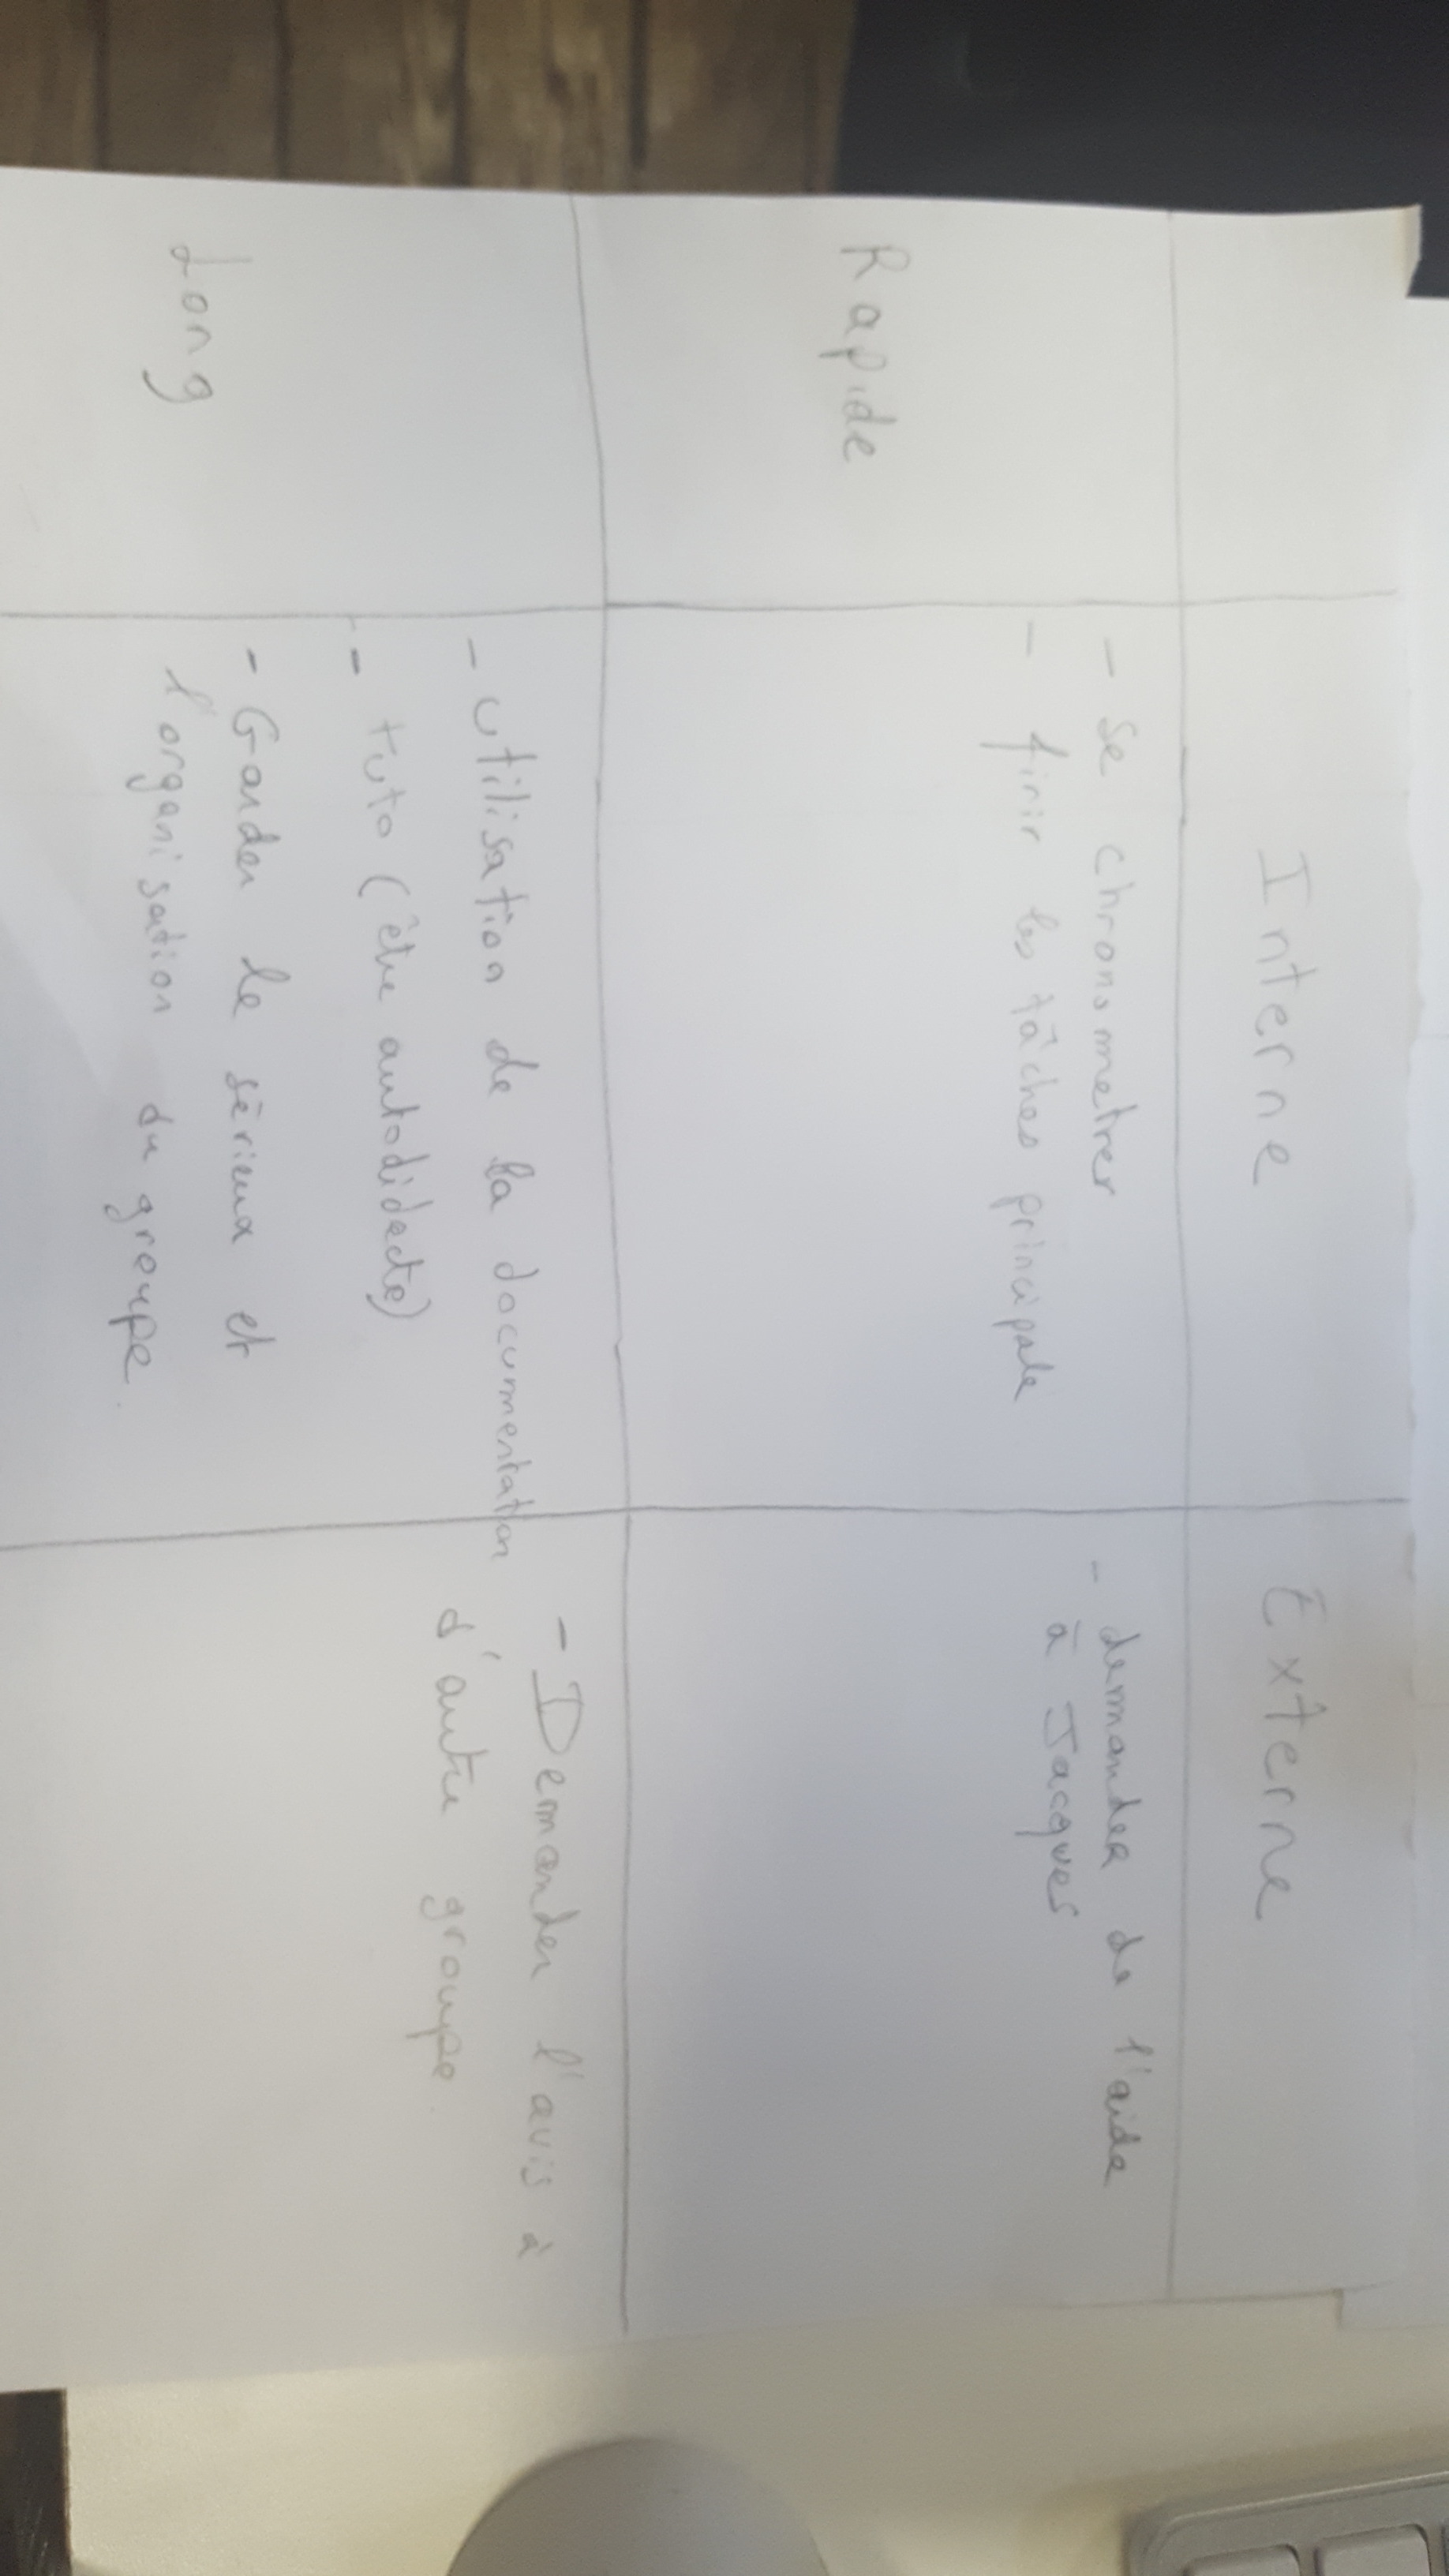 Interne
Externe
Rapide
- Se chronometrer
- finir les tâches principale
- demander de l'aide
à Jacques
Long
- utilisation de la documentation
- tuto (être autodidacte)
- Garder le sérieux et
l'organisation du groupe.
- Demander l'avis à
d'autre groupe.